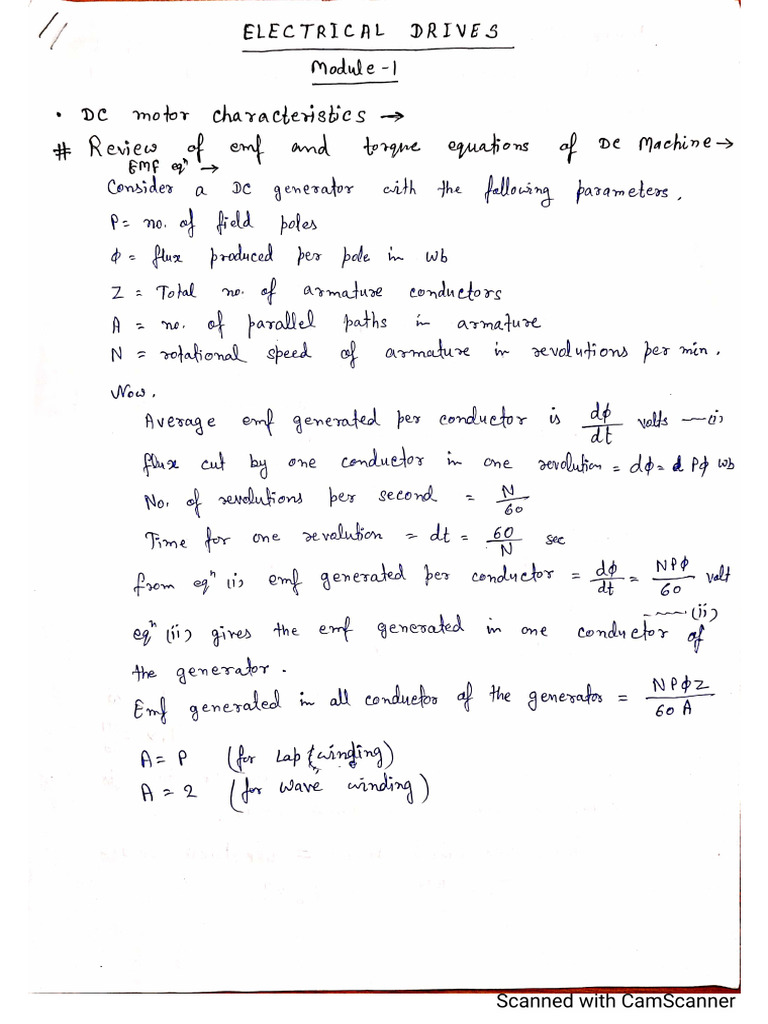 ELECTRICAL DRIVES
Module-1
• DC motor characteristics →
# Review of emf and torque equations of DC Machine →
EMF eqⁿ →
Consider a DC generator with the following parameters.
P = no. of field poles
ϕ = flux produced per pole in wb
Z = Total no. of armature conductors
A = no. of parallel paths in armature
N = rotational speed of armature in revolutions per min.
Now,
Average emf generated per conductor is dϕ/dt volts —(i)
flux cut by one conductor in one revolution = dϕ = Pϕ wb
No. of revolutions per second = N/60
Time for one revolution = dt = 60/N sec
from eqⁿ (i), emf generated per conductor = dϕ/dt = NPϕ/60 volt
—(ii)
eqⁿ (ii) gives the emf generated in one conductor of
the generator.
Emf generated in all conductor of the generator = NPϕZ/60 A
A = P (for Lap winding)
A = 2 (for wave winding)
Scanned with CamScanner